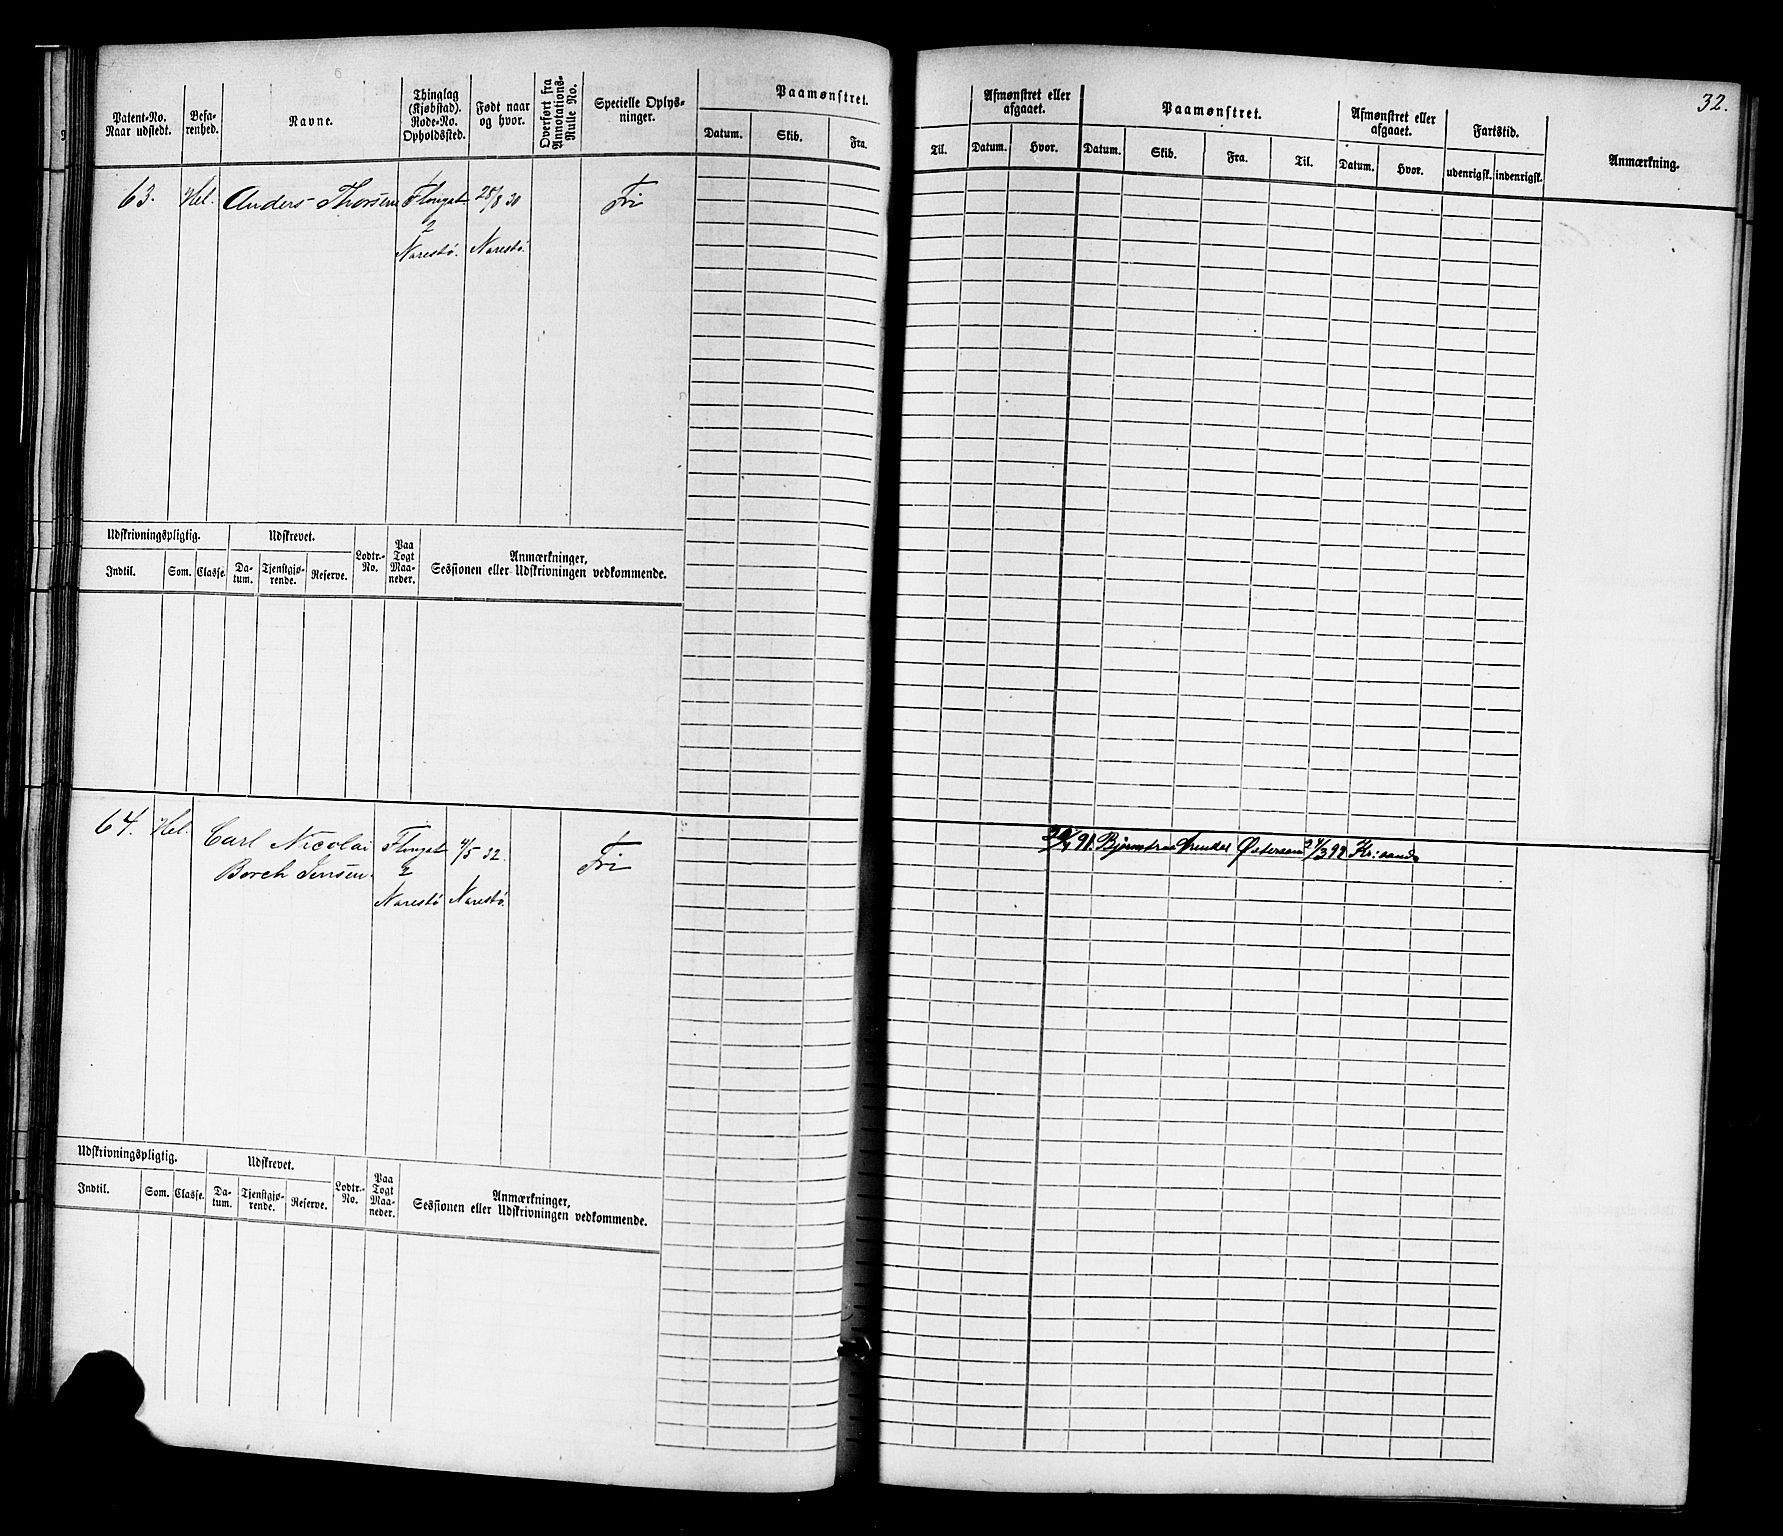 32.
Patent-No. Naar udstedt.
Befarenhed.
Navne.
Thinglag (Kjøbstad). Rode-No. Opholdssted.
Født naar og hvor.
Overført fra Annotations-Rulle No.
Specielle Oplysninger.
Paamønstret.
Datum. Skib. Fra. Til.
Afmønstret eller afgaaet.
Datum. Hvor.
Paamønstret.
Datum. Skib. Fra. Til.
Afmønstret eller afgaaet.
Datum. Hvor.
Fartstid.
udenrigsk. indenrigsk.
Anmærkning.
63. Hel. Anders Thorsen 28/8 30 Fri
2
Narestø. Narestø.
Udskrivningspligtig. Udskrevet. Lodtr.-No. Paa Togt Maaneder. Anmærkninger, Sessionen eller Udskrivningen vedkommende.
Indtil. Som. Classe. Datum. Tjenstgjørende. Reserve.
64. Hel. Carl Nicolai 4/5 32. Fri
Borch Jensen. 2
Narestø Narestø.
Udskrivningspligtig. Udskrevet. Lodtr.-No. Paa Togt Maaneder. Anmærkninger, Sessionen eller Udskrivningen vedkommende.
Indtil. Som. Classe. Datum. Tjenstgjørende. Reserve.